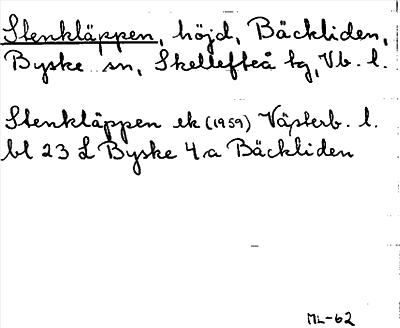 Stenkläppen, höjd, Bäckliden,
Byske sn, Skellefteå tg, Vb. l.
Stenkläppen ek (1959) Västerb. l.
bl 23 L Byske 4 a Bäckliden
ML-62